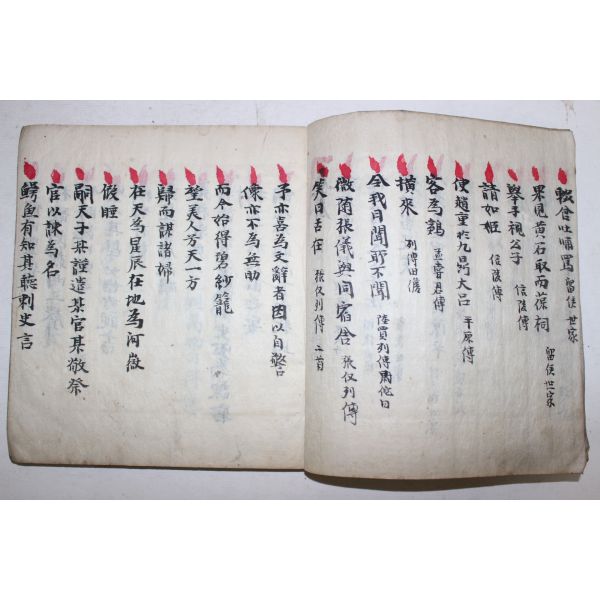 輟食吐哺罵 留侯世家
果見黃石取而葆祠 留侯世家
舉手視公子 信陵傳
請如姬 信陵傳
使趙重於九鼎大呂 平原傳
客為鷄 孟嘗君傳
橫來 列傳田儋
令我日聞所不聞 陸賈列傳尉佗曰
微簡張儀與同宿舍 張仪列傳
笑曰舌在 張仪列傳 二首
予亦喜為文辭者因以自警
傑亦不為無助
而今始得碧紗籠
望美人方天一方
歸而謀諸婦
在天為星辰在地為河嶽
假睡
嗣天子某謹遣某官某敬祭
官以諫為名
鰐魚有知其聽刺史言